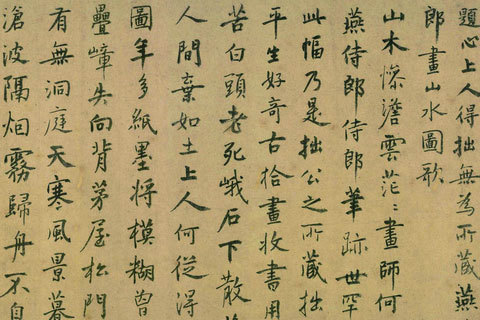 題心上人得拙無為所藏燕
郎畫山水圖歌
山木慘澹雲茫〻畫師何
燕侍郎侍郎筆跡世罕
此幅乃是拙公之所藏拙
平生好奇古拾畫收書用
苦白頭老死峨石下散
人間棄如土上人何從得
圖年多紙墨將模糊曾
疊嶂失向背茅屋松門
有無洞庭天寒風景暮
滄波隔烟霧歸舟不自